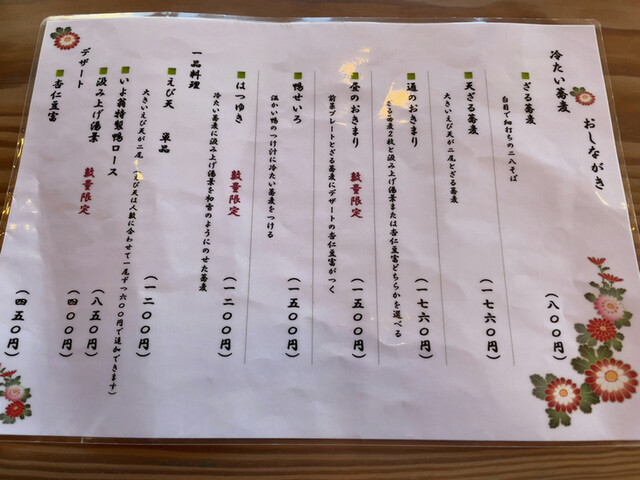 おしながき
冷たい蕎麦
ざる蕎麦
(八〇〇円)
白目で細打ちの二八そば
天ざる蕎麦
(一七六〇円)
大きいえび天が二尾とざる蕎麦
通のおきまり
(一七六〇円)
ざる蕎麦2枚と汲み上げ湯葉または杏仁豆富どちらかを選べる
昼のおきまり 数量限定
(一五〇〇円)
前菜プレートとざる蕎麦にデザートの杏仁豆富がつく
鴨せいろ
(一五〇〇円)
温かい鴨のつけ汁に冷たい蕎麦をつける
はつゆき 数量限定
(一二〇〇円)
冷たい蕎麦に汲み上げ湯葉を初雪のようにのせた蕎麦
一品料理
えび天 単品
(一二〇〇円)
大きいえび天が二尾(えび天は人数に合わせて一尾ずつ六〇〇円で追加できます)
いよ翁特製鴨ロース 数量限定
(八五〇円)
汲み上げ湯葉
(四〇〇円)
デザート
杏仁豆富
(四五〇円)